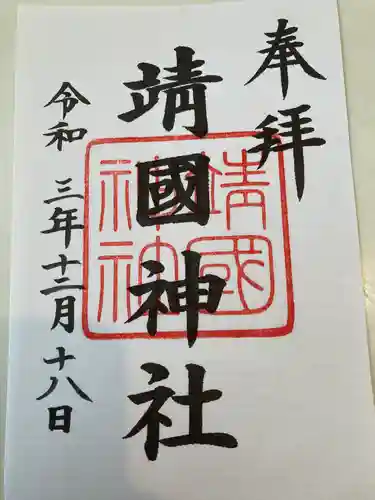 奉拝
靖國神社
靖國神社
令和三年十二月十八日